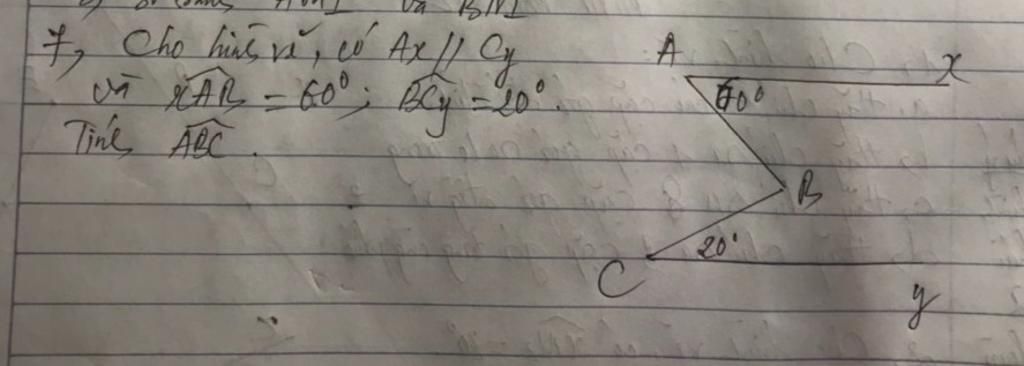 7, Cho hình vẽ, có Ax // Cy
và xAB = 60°; BCy = 20°.
Tính ABC.
A
x
60°
B
20°
C
y